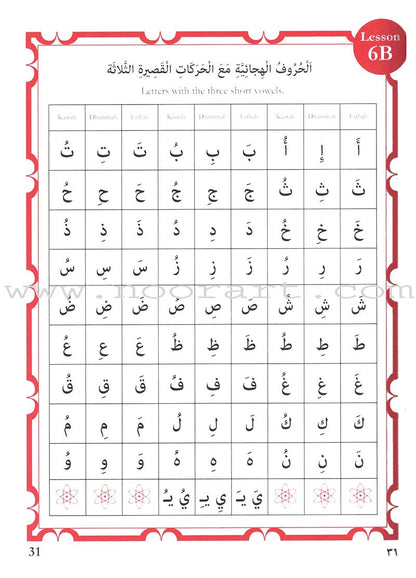 Lesson
6B
اَلْحُرُوفُ الْهِجائِيَّةِ مَعَ الْحَرَكَاتِ الْقَصِيرةِ الثَّلاثَة
Letters with the three short vowels.
Kasrah Dhammah Fathah Kasrah Dhammah Fathah Kasrah Dhammah Fathah
أَ إِ أُ بَ بِ بُ تَ تِ تُ
ثَ ثِ ثُ جَ جِ جُ حَ حِ حُ
خَ خِ خُ دَ دِ دُ ذَ ذِ ذُ
رَ رِ رُ زَ زِ زُ سَ سِ سُ
www.noorart.com
شَ شِ شُ صَ صِ صُ ضَ ضِ ضُ
طَ طِ طُ ظَ ظِ ظُ عَ عِ عُ
غَ غِ غُ فَ فِ فُ قَ قِ قُ
كَ كِ كُ لَ لِ لُ مَ مِ مُ
نَ نِ نُ هَ هِ هُ وَ وِ وُ
يَ يَـ يِ يِـ يُ يُـ
31
٣١